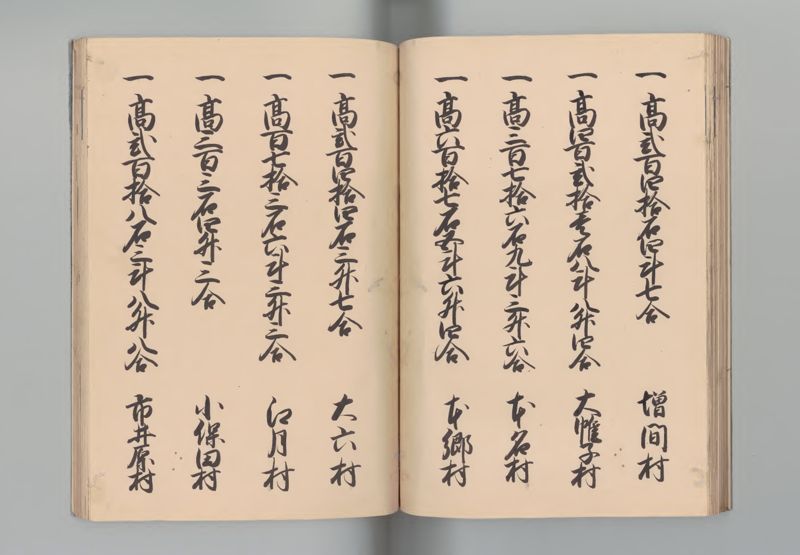 一 高弐百四拾石四斗七合 増間村
一 高四百弐拾壱石八斗八升四合 大帷子村
一 高三百七拾六石九斗三升六合 本名村
一 高六百拾七石五斗六升四合 本郷村
一 高弐百四拾四石三升七合 大六村
一 高百七拾三石六斗三升三合 江月村
一 高三百三石四升三合 小保田村
一 高弐百拾八石三斗八升八合 市井原村